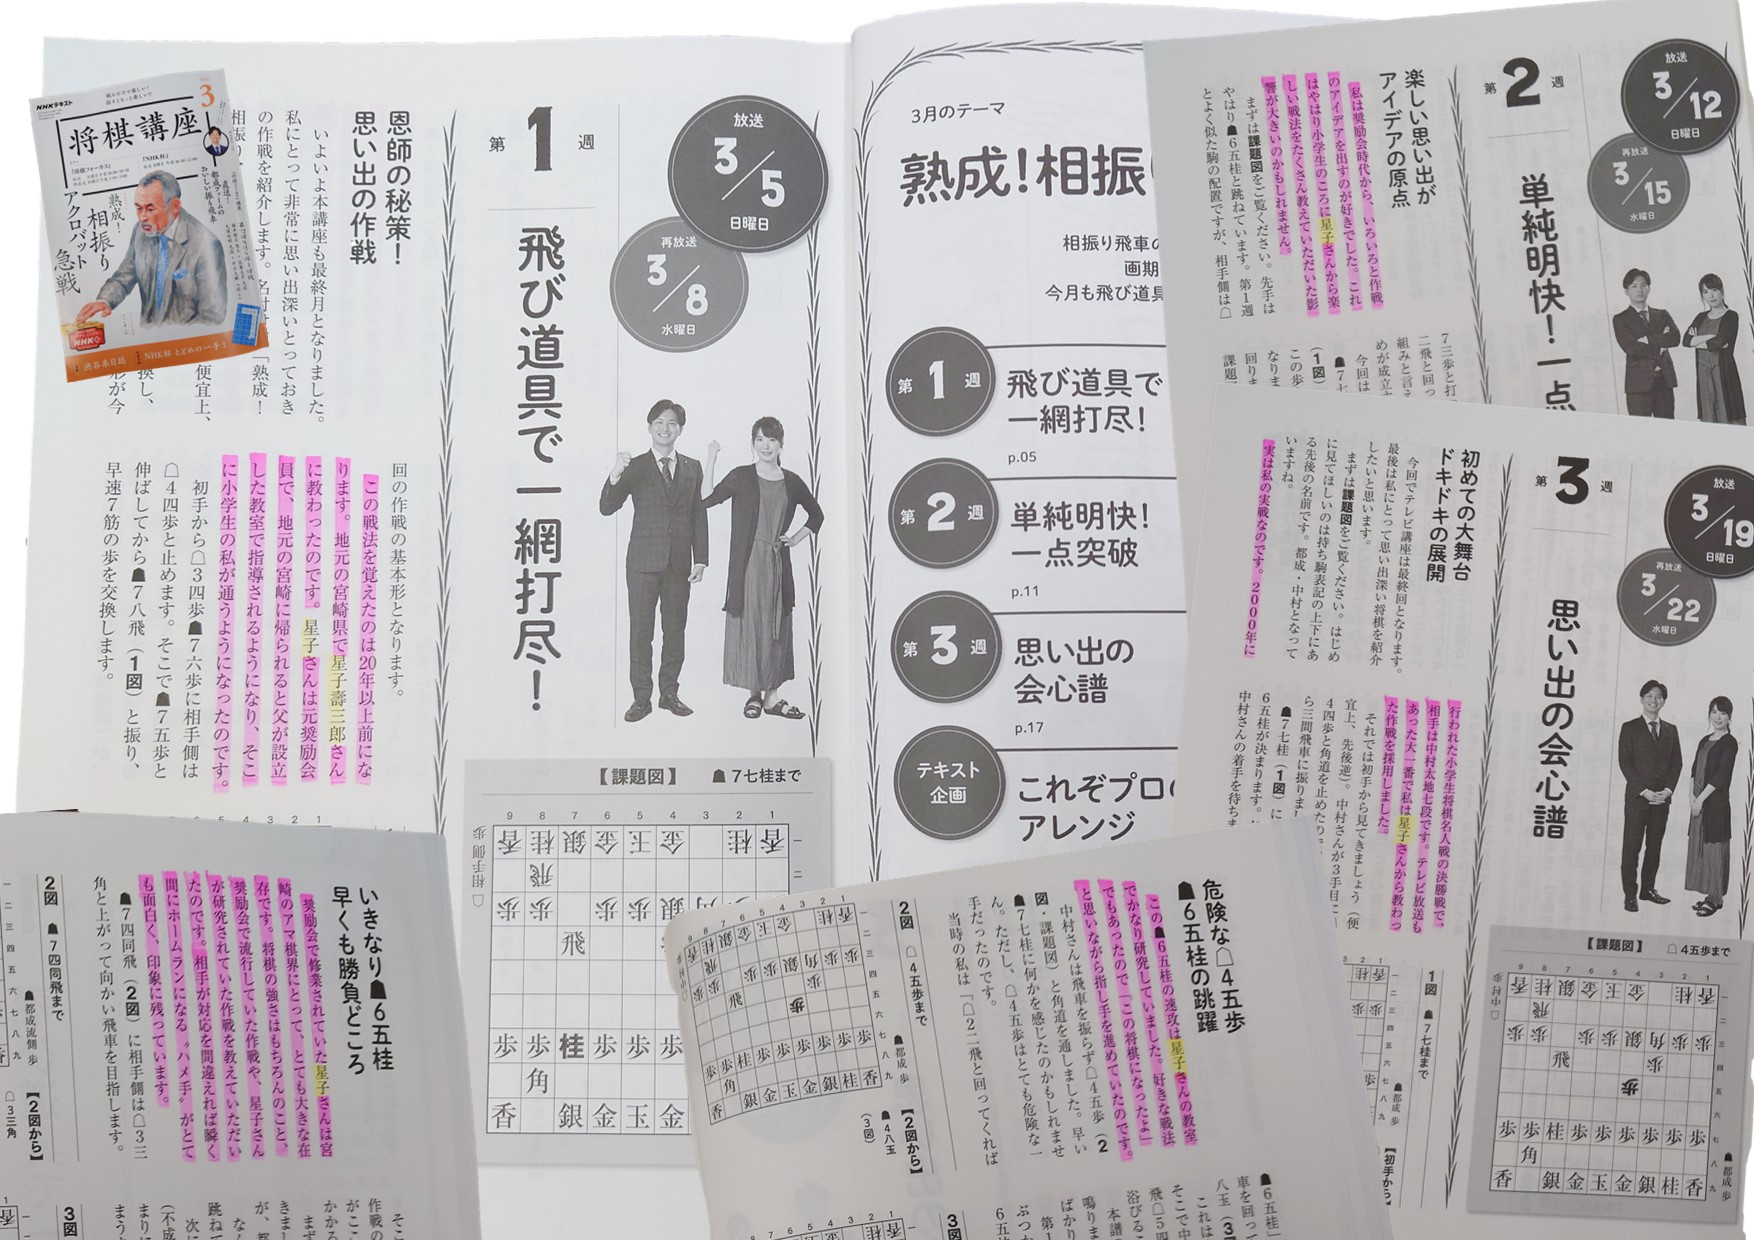 NHKテキスト
3
将棋講座
熟成!
相振り
アクロバット
急戦
NHK
渋谷県日誌
NHK杯 とどめの一手3
恩師の秘策!
思い出の作戦
いよいよ本講座も最終月となりました。
私にとって非常に思い出深いとっておき
の作戦を紹介します。名付け
「熟成!
相振り
便宜上、
換し、
形が今
回の作戦の基本形となります。
この戦法を覚えたのは20年以上前にな
ります。地元の宮崎県で星子壽三郎さん
に教わったのです。星子さんは元奨励会
員で、地元の宮崎に帰られると父が設立
した教室で指導されるようになり、そこ
に小学生の私が通うようになったのです。
初手から☖3四歩☗7六歩に相手側は
☖4四歩と止めます。そこで☗7五歩と
伸ばしてから☗7八飛(1図)と振り、
早速7筋の歩を交換します。
第1週
飛び道具で一網打尽!
放送
3/5
日曜日
再放送
3/8
水曜日
【課題図】 ☗7七桂まで
9 8 7 6 5 4 3 2 1
☖相手側 歩
香 桂 銀 金 玉 金 桂 香
飛
歩 歩 歩 歩 銀 角 歩
飛
歩 歩 桂 歩 歩 歩
角
香 銀 金 玉 金
3月のテーマ
熟成!相振り
相振り飛車の
画期
今月も飛び道具
第1週
飛び道具で
一網打尽!
p.05
第2週
単純明快!
一点突破
p.11
第3週
思い出の
会心譜
p.17
テキスト
企画
これぞプロの
アレンジ
第2週
単純明快!一点
放送
3/12
日曜日
再放送
3/15
水曜日
楽しい思い出が
アイデアの原点
私は奨励会時代から、いろいろと作戦
のアイデアを出すのが好きでした。これ
はやはり小学生のころに星子さんから楽
しい戦法をたくさん教えていただいた影
響が大きいのかもしれません。
まずは課題図をご覧ください。先手は
やはり☗6五桂と跳ねています。第1週
とよく似た駒の配置ですが、相手側は☖
7三歩と打
二飛と回っ
組みと言え
めが成立す
今回は
☗7七
(1図)
この歩
なりま
回りま
課題
第3週
思い出の会心譜
放送
3/19
日曜日
再放送
3/22
水曜日
初めての大舞台
ドキドキの展開
今回でテレビ講座は最終回となります。
最後は私にとって思い出深い将棋を紹介
したいと思います。
まずは課題図をご覧ください。はじめ
に見てほしいのは持ち駒表記の上下にあ
る先後の名前です。都成・中村となって
いますね。
実は私の実戦なのです。2000年に
行われた小学生将棋名人戦の決勝戦で、
相手は中村太地七段です。テレビ放送も
あった大一番で私は星子さんから教わっ
た作戦を採用しました。
それでは初手から見てきましょう(便
宜上、先後逆)。中村さんが3手目に☖
4四歩と角道を止めたので
ら三間飛車に振りまし
☗7七桂(1図)に
6五桂が決まります。
中村さんの着手を待ちま
1図 ☗7七桂まで
☗都成 歩
【初手から】
【課題図】 ☖4五歩まで
9 8 7 6 5 4 3 2 1
☖中村 歩
香 桂 銀 金 玉 金 桂 香
飛
歩 歩 歩 歩 銀 角 歩 歩
飛 歩
歩
歩 歩 桂 歩 歩 歩 歩 歩 歩
角
香 銀 金 玉 金 銀 桂 香
☗都成 歩
いきなり☗6五桂
早くも勝負どころ
奨励会で修業されていた星子さんは宮
崎のアマ棋界にとって、とても大きな存
在です。将棋の強さはもちろんのこと、
奨励会で流行していた作戦や、星子さん
が研究されていた作戦を教えていただい
たのです。相手が対応を間違えれば瞬く
間にホームランになる〝ハメ手〟がとて
も面白く、印象に残っています。
☗7四同飛(2図)に相手側は☖3二
角と上がって向かい飛車を目指します。
2図 ☗7四同飛まで
☗都成流側 歩
【2図から】
☖3三角
3図
危険な☖4五歩
☗6五桂の跳躍
この☗6五桂の速攻は星子さんの教室
でかなり研究していました。好きな戦法
でもあったので「この将棋になったよ」
と思いながら指し手を進めていたのです。
中村さんは飛車を振らず☖4五歩(2
図・課題図)と角道を通しました。早い
☗7七桂に何かを感じたのかもしれませ
ん。ただし、☖4五歩はとても危険な一
手だったのです。
当時の私は「☖2二飛と回ってくれれば
2図 ☖4五歩まで
☗都成 歩
【2図から】
☗4八玉
(3図)
3図
☗6五桂」
車を回って
八玉(3図
これは
そこで中
飛☖5四
浴びるこ